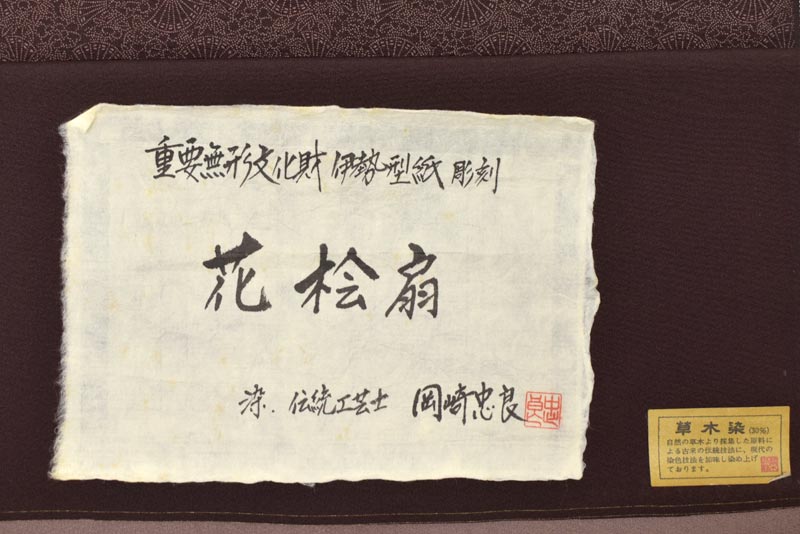 重要無形文化財 伊勢型紙 彫刻
花桧扇
染. 伝統工芸士 岡崎忠良
草木染(30%)
自然の草木より採集した原料に
よる古来の伝統技法に、現代の
染色技法を加味し染め上げ
ております。